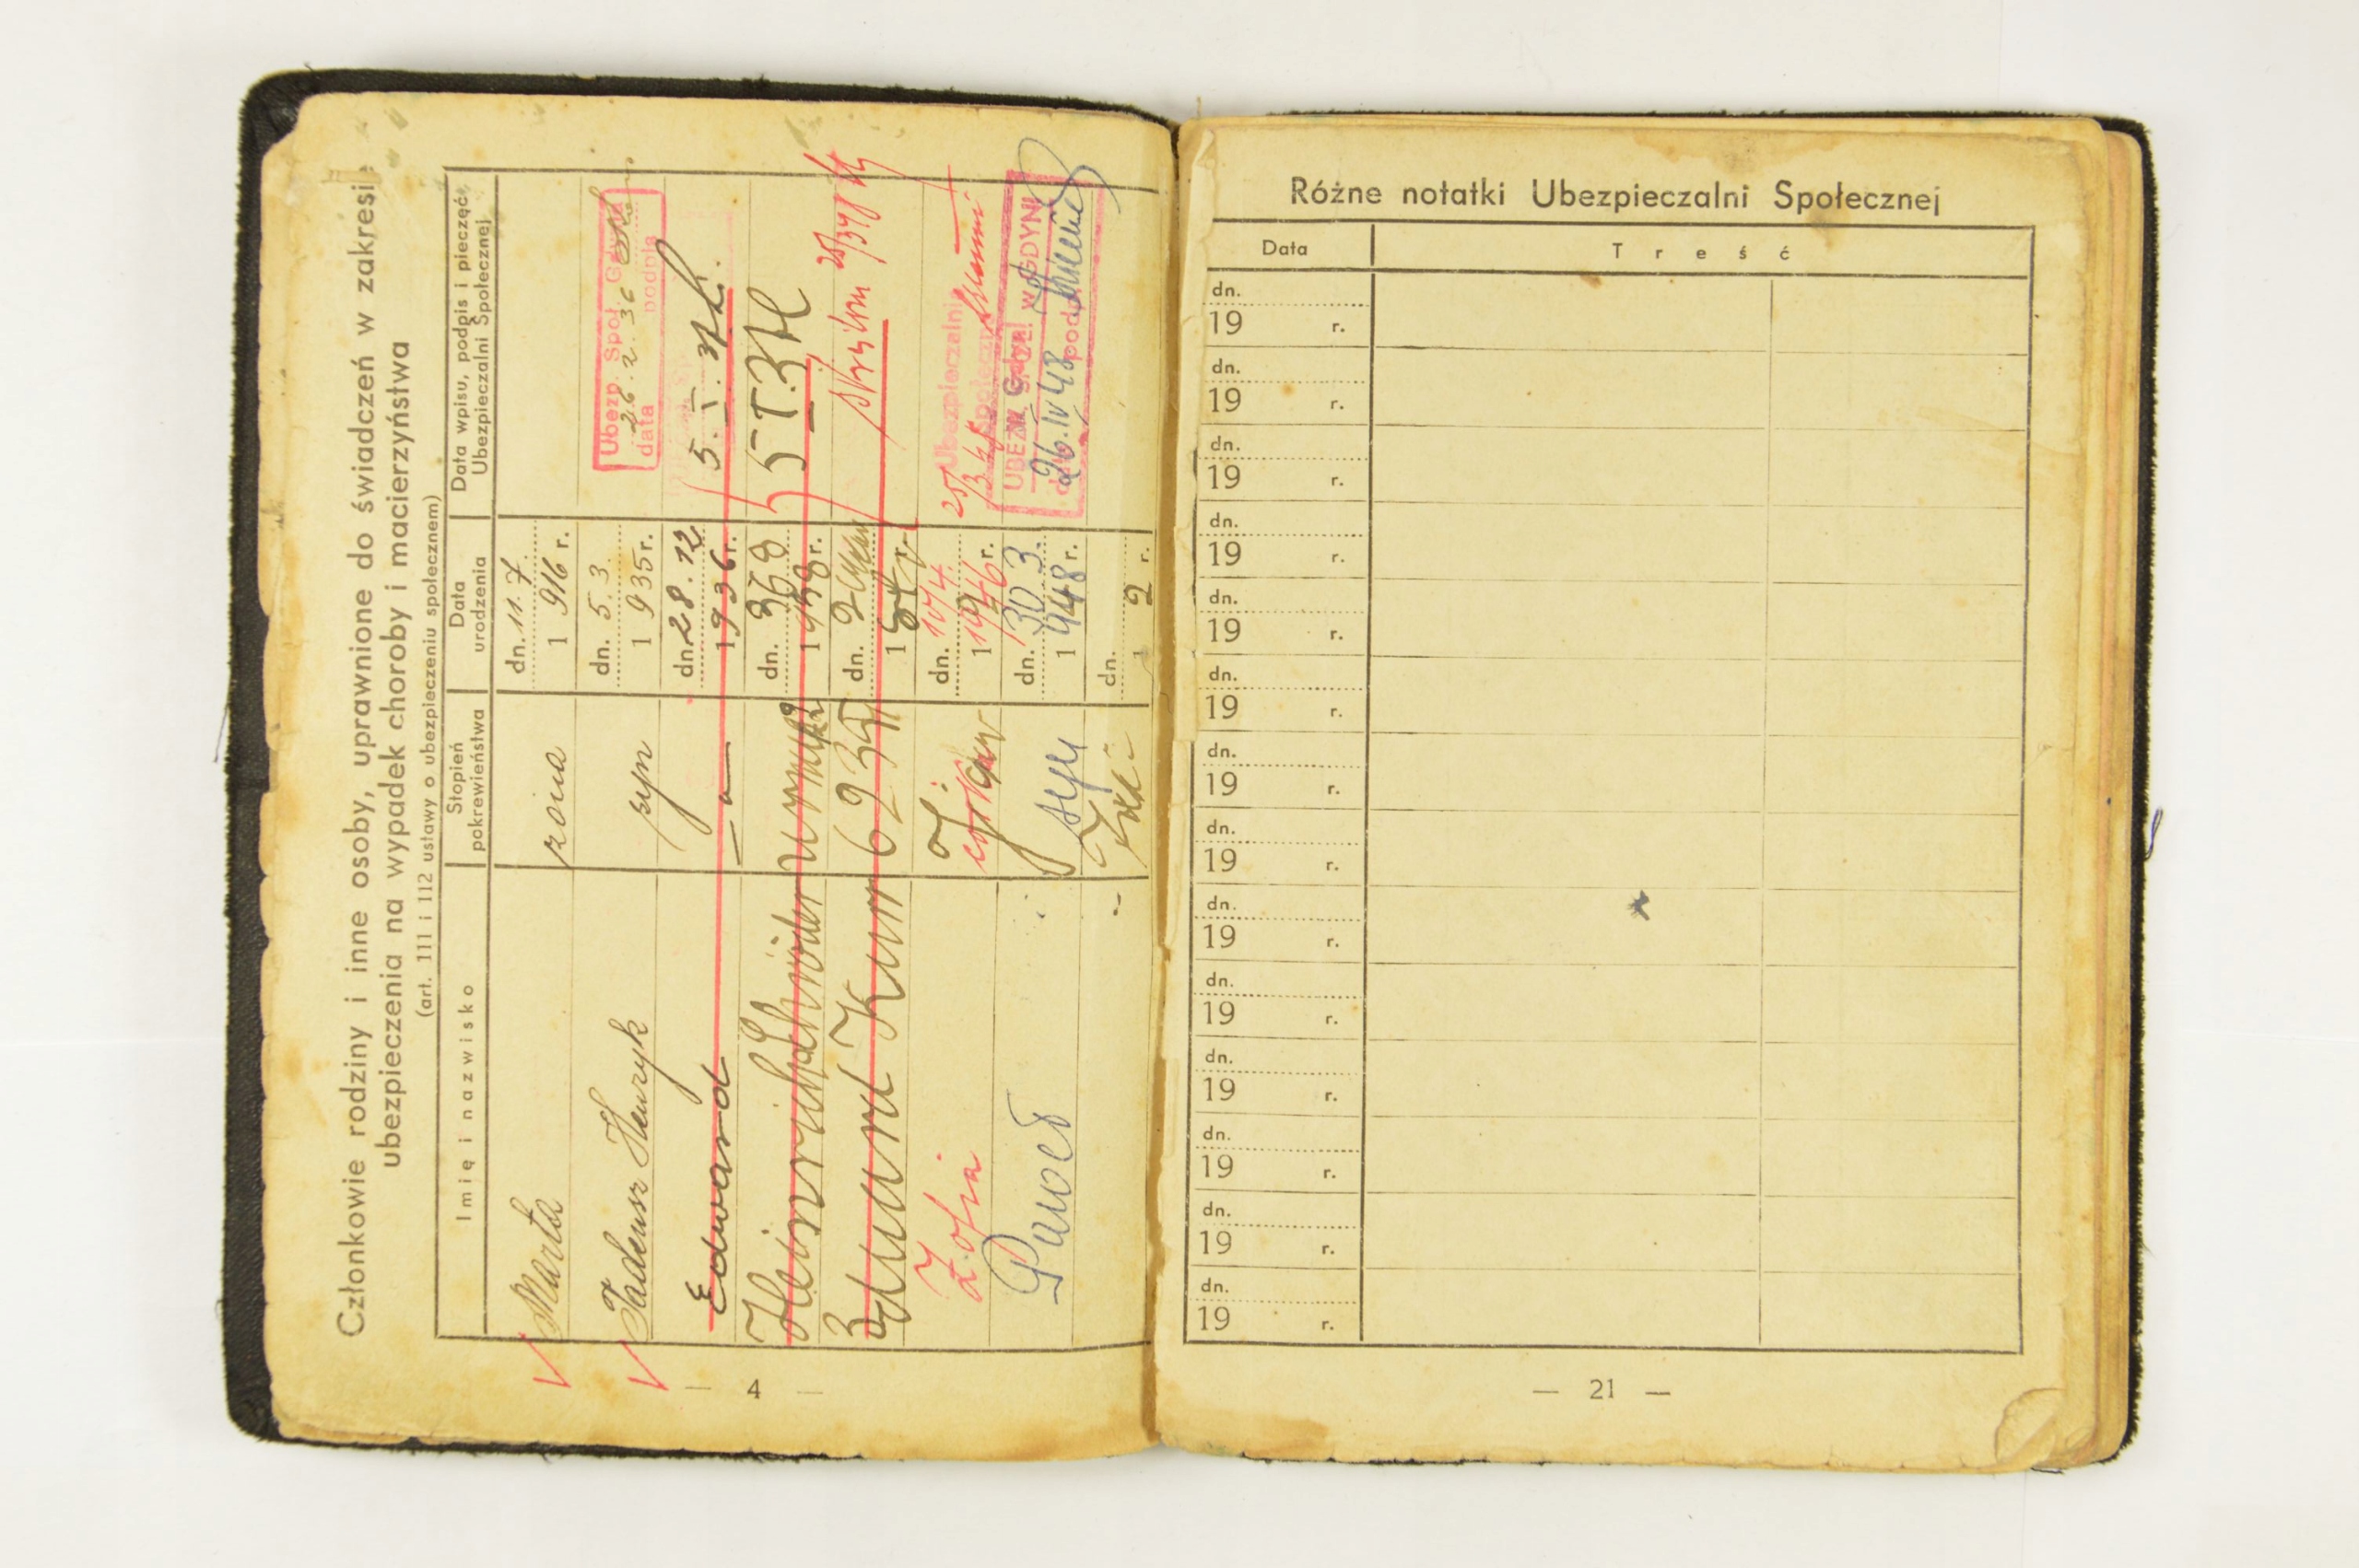 Członkowie rodziny i inne osoby, uprawnione do świadczeń w zakresie
ubezpieczenia na wypadek choroby i macierzyństwa
(art. 111 i 112 ustawy o ubezpieczeniu społecznem)
Imię i nazwisko
Stopień pokrewieństwa
Data urodzenia
Data wpisu, podpis i pieczęć Ubezpieczalni Społecznej
Marta żona dn. 11. 7. 1916 r.
Tadeusz Henryk syn dn. 5. 3. 1935 r.
Ubezp. Społ. Gdynia
26. 2. 36
data podpis
Edward — " — dn. 28. 12 1936 r. 5. I. 37
Heinrich dn. 1938 r.
dn. 1 r.
Zofia córka dn. 10/4 1946 r.
Ubezpieczalnia
Społeczna
w Gdyni
Paweł syn dn. 30 3. 1948 r.
UBEZP. SPOŁ. w GDYNI
26. IV 48
dn. 1 2 r.
— 4 —
Różne notatki Ubezpieczalni Społecznej
Data Treść
dn.
19 r.
dn.
19 r.
dn.
19 r.
dn.
19 r.
dn.
19 r.
dn.
19 r.
dn.
19 r.
dn.
19 r.
dn.
19 r.
dn.
19 r.
dn.
19 r.
dn.
19 r.
dn.
19 r.
dn.
19 r.
— 21 —